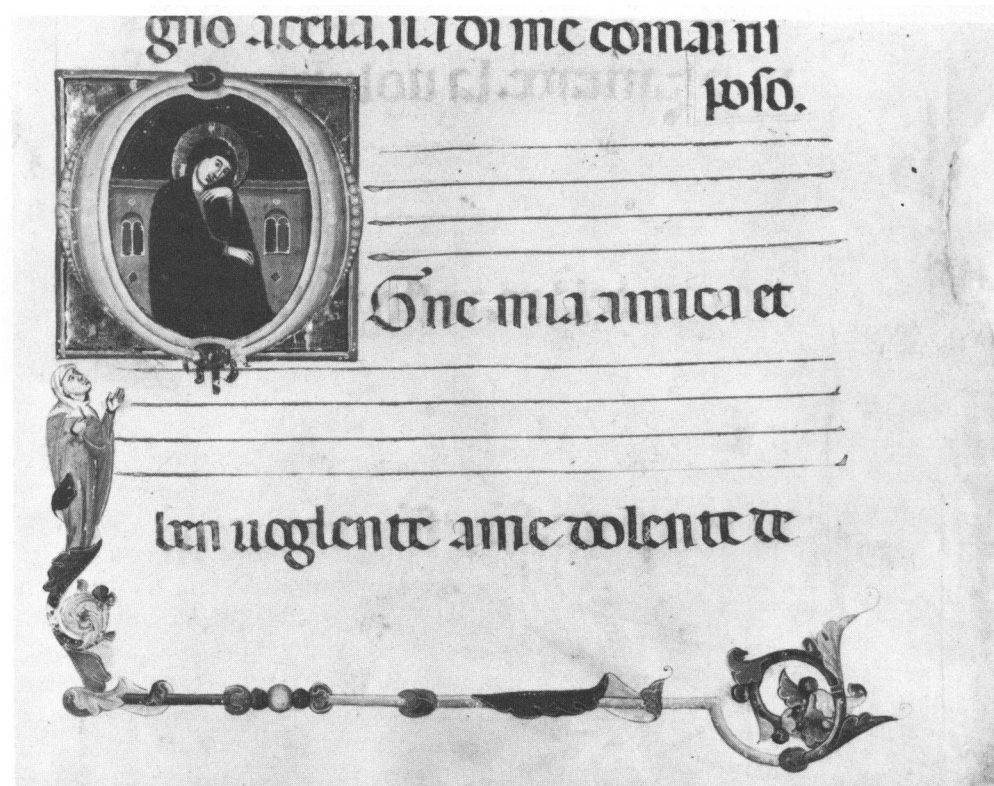 gno di me com ai ri
poso.
Ogne mia amica et
ben uoglente ame dolente de